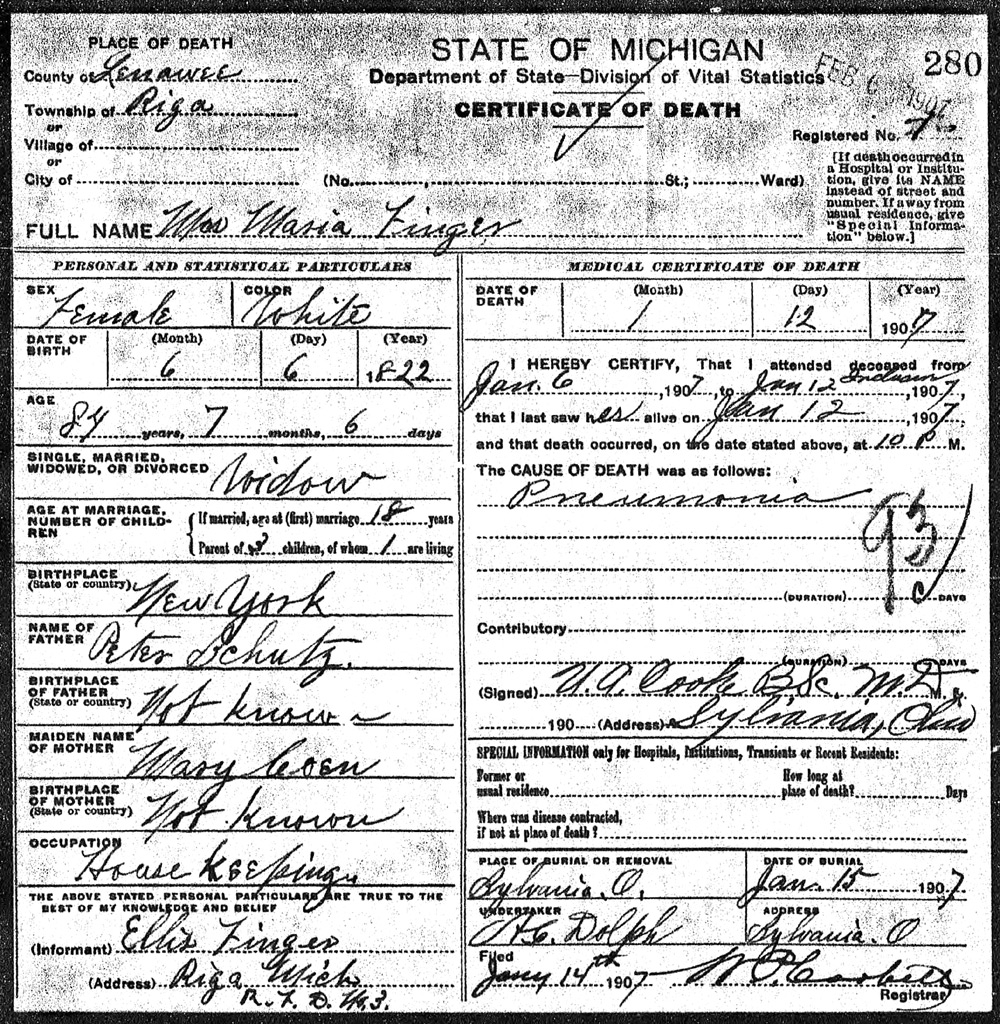 PLACE OF DEATH
County of Lenawee
Township of Riga
or
Village of
or
City of
STATE OF MICHIGAN
Department of State—Division of Vital Statistics
CERTIFICATE OF DEATH
FEB 6 1907
280
Registered No.
(No. , St.; Ward)
[If death occurred in
a Hospital or Institu-
tion, give its NAME
instead of street and
number. If away from
usual residence, give
"Special Informa-
tion" below.]
FULL NAME Mrs Maria Finger
PERSONAL AND STATISTICAL PARTICULARS
SEX Female
COLOR White
DATE OF BIRTH
(Month) 6 (Day) 6 (Year) 1822
AGE
84 years, 7 months, 6 days
SINGLE, MARRIED,
WIDOWED, OR DIVORCED Widow
AGE AT MARRIAGE,
NUMBER OF CHILD-
REN
If married, age at (first) marriage 18 years
Parent of 3 children, of whom 1 are living
BIRTHPLACE
(State or country) New York
NAME OF
FATHER Peter Schutz.
BIRTHPLACE
OF FATHER
(State or country) Not known
MAIDEN NAME
OF MOTHER Mary Coen
BIRTHPLACE
OF MOTHER
(State or country) Not Known
OCCUPATION
House Keeping
THE ABOVE STATED PERSONAL PARTICULARS ARE TRUE TO THE
BEST OF MY KNOWLEDGE AND BELIEF
(Informant) Ellis Finger
(Address) Riga Mich
R. F. D. No. 3
MEDICAL CERTIFICATE OF DEATH
DATE OF
DEATH
(Month) 1 (Day) 12 (Year) 1907
I HEREBY CERTIFY, That I attended deceased from
Jan. 6, 1907, to Jan 12 Inclusive, 1907,
that I last saw her alive on Jan 12 1907,
and that death occurred, on the date stated above, at 10 P M.
The CAUSE OF DEATH was as follows:
Pneumonia
93
c
(DURATION) DAYS
Contributory
(DURATION) DAYS
(Signed) U. A. Cooke B.Sc. M.D. M. D.
190 (Address) Sylvania, Ohio
SPECIAL INFORMATION only for Hospitals, Institutions, Transients or Recent Residents:
Former or
usual residence
How long at
place of death? Days
Where was disease contracted,
if not at place of death?
PLACE OF BURIAL OR REMOVAL
Sylvania. O.
DATE OF BURIAL
Jan. 15 1907
UNDERTAKER
H.C. Dolph
ADDRESS
Sylvania. O
Filed
Jany 14th 1907
W. P. Corbett
Registrar